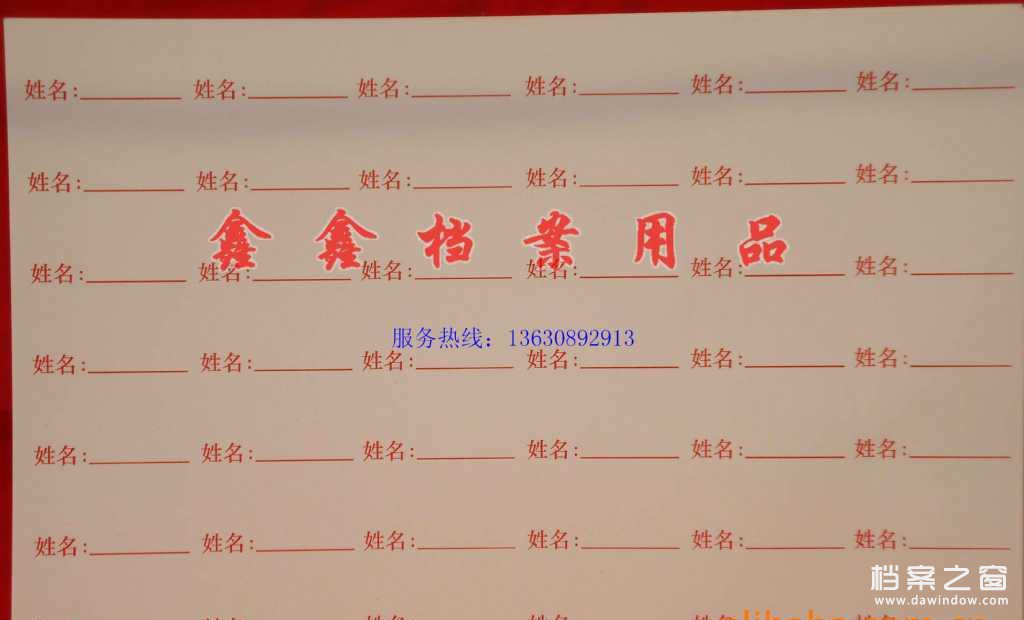 姓名:______ 姓名:______ 姓名:______ 姓名:______ 姓名:______ 姓名:______
姓名:______ 姓名:______ 姓名:______ 姓名:______ 姓名:______ 姓名:______
鑫鑫档案用品
姓名:______ 姓名:______ 姓名:______ 姓名:______ 姓名:______ 姓名:______
服务热线：13630892913
姓名:______ 姓名:______ 姓名:______ 姓名:______ 姓名:______ 姓名:______
姓名:______ 姓名:______ 姓名:______ 姓名:______ 姓名:______ 姓名:______
姓名:______ 姓名:______ 姓名:______ 姓名:______ 姓名:______ 姓名:______
档案之窗
www.dawindow.com